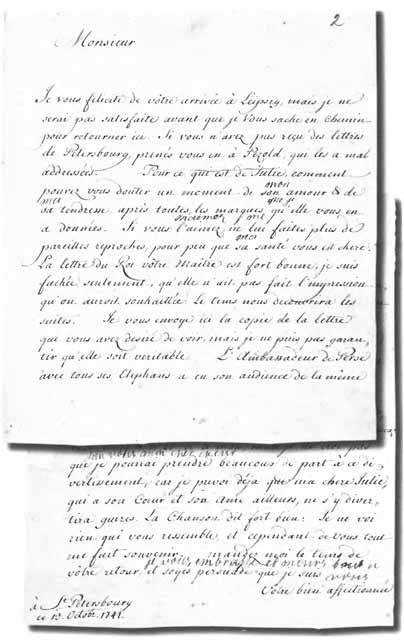 2
Monsieur
Je vous felicite de vôtre arrivée à Leipzig, mais je ne
serai pas satisfaite avant que je vous sache en chemin
pour retourner ici. Si vous n'avez pas reçu des lettres
de Petersbourg, prenés vous en à Pezold, qui les a mal
addressées. Pour ce qui est de Julie, comment
mon
pouvez vous douter un moment de son amour & de
ma que je
sa tendresse, après toutes les marques qu'elle vous en
m'aimez me
a données. Si vous l'aimez ne lui faites plus de
ma
pareilles reproches, pour peu que sa santé vous est chere.
La lettre du Roi vôtre Maitre est fort bonne, je suis
fachée seulement, qu'elle n'ait pas fait l'impression
qu'on auroit souhaittée. Le tems nous decouvrira les
suites. Je vous envoye ici la copie de la lettre
que vous avez desiré de voir, mais je ne puis pas garan-
tir qu'elle soit veritable. L'Ambassadeur de Perse
avec tous ses Elephans a eu son audience de la même
que je pourrai prendre beaucoup de part a ce di-
vertissement, car je prevoi déja que ma chere Julie,
qui a son Cœur et son Ame ailleurs, ne s'y diver-
tira gueres. La Chanson dit fort bien: Je ne voi
rien qui vous ressemble, et cependant de vous tout
me fait souvenir. mandez moi le tems de
je vous embrasse et meurs
vôtre retour, et soyez persuadé que je suis
vous
Votre bien affectionnée
à St Petersbourg
ce 13 Octobr. 1741.